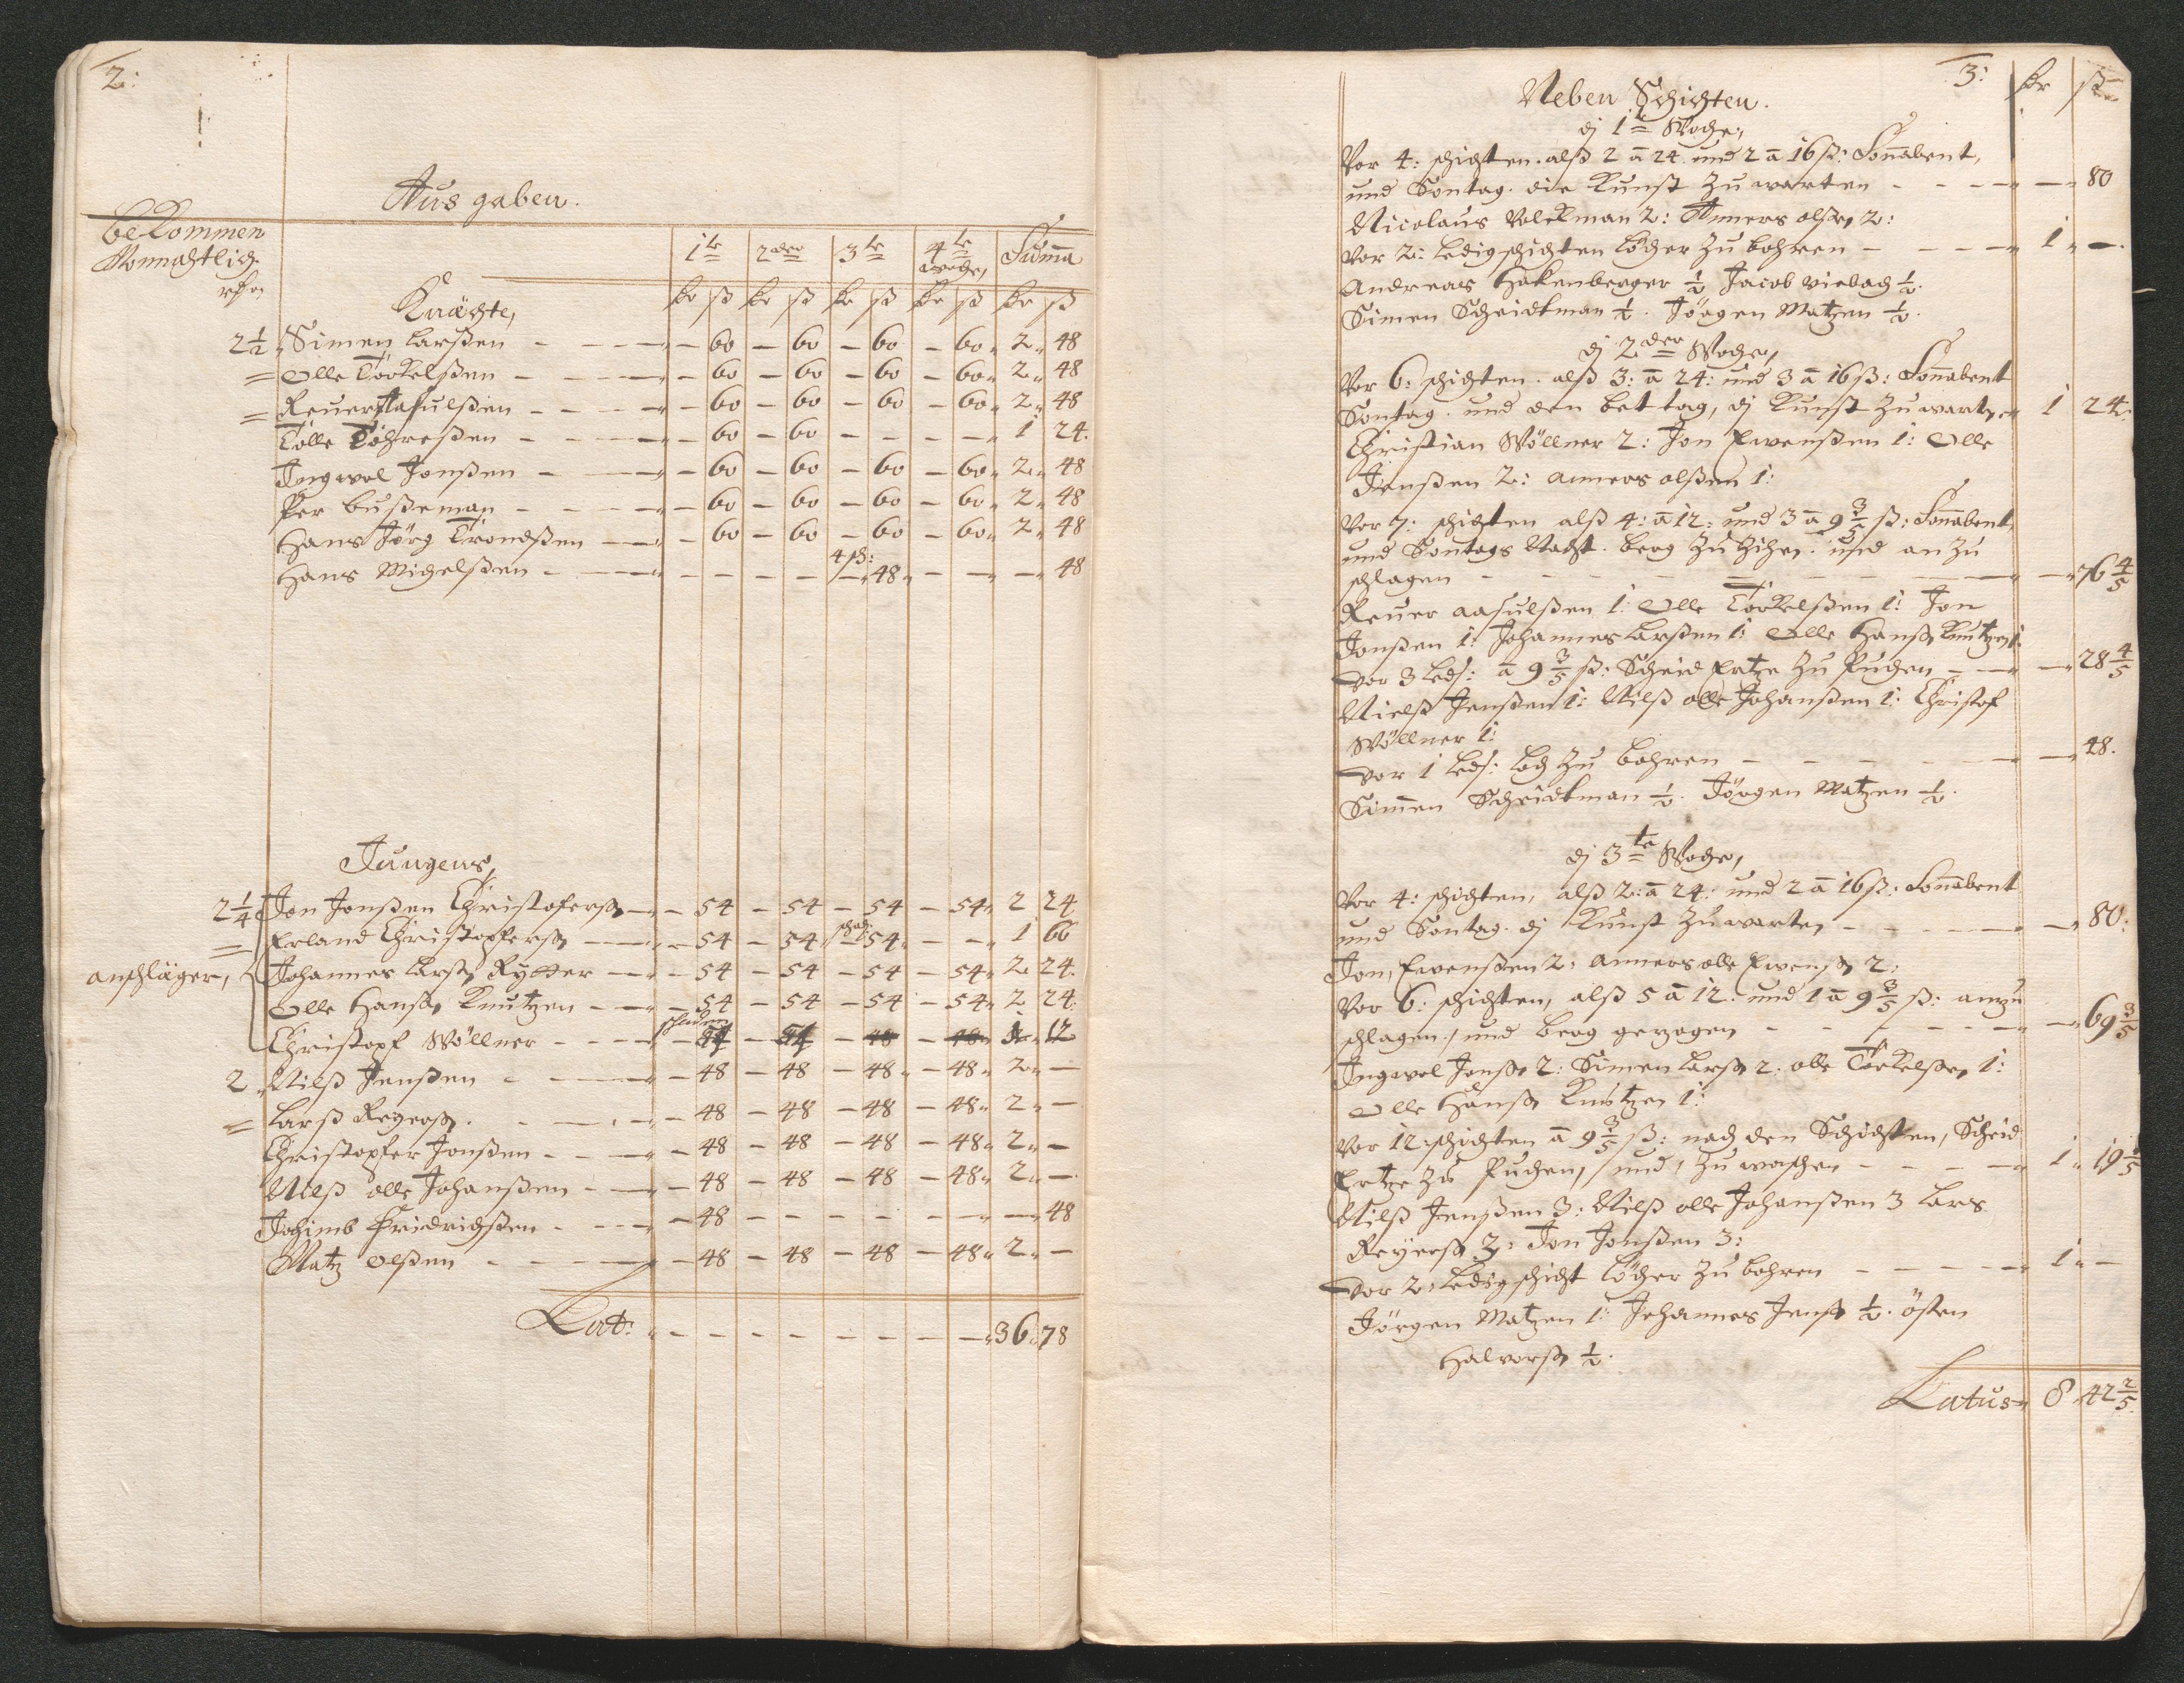 2:
Aus gaben.
bekommen
Monnachtlich
rthr
1te 2dere 3te 4te Woche, Suma
Knächte,
Kr ß Kr ß Kr ß Kr ß Kr ß
2½ Simen Larßen - - 60 - 60 - 60 - 60 „ 2 „ 48
= Olle Torkelßen - - 60 - 60 - 60 - 60 „ 2 „ 48
= Reuer Aasulßen - - 60 - 60 - 60 - 60 „ 2 „ 48
Tölle Töhreßen - - 60 - 60 - - - - 1 24.
Ingwol Jonßen - - 60 - 60 - 60 - 60 „ 2 „ 48
Per bußeman - - 60 - 60 - 60 - 60 „ 2 „ 48
Hans Jörg Trondßen - - 60 - 60 - 60 - 60 „ 2 „ 48
4 sch:
Hans Migelßen - - - - - - 48 „ - - - 48
Jungens,
2¼ Jon Jonßen Christoferß - - 54 - 54 - 54 - 54 „ 2 24
= Erland Christopferß - - 54 - 54 - 54 „ - - 1 66
anschläger, Johannes Larß Rytter - - 54 - 54 - 54 - 54 „ 2 24.
Olle Hanß Knutzen - - 54 - 54 - 54 - 54 „ 2 24:
Christopf Wöllner - - 54 - 54 - 48 - 48 „ 1 „ 12
2 „ Nilß Jenßen - - 48 - 48 - 48 „ - 48 „ 2 „ -
= Larß Reyerß. - - 48 - 48 - 48 - 48 „ 2 „ -
Christopfer Jonßen - - 48 - 48 - 48 - 48 „ 2 „ -
Nilß olle Johanßen - - 48 - 48 - 48 - 48 „ 2 „ -
Jochimb Fridrichßen - - 48 - - - - - - - 48
Matz Olßen - - 48 - 48 - 48 - 48 „ 2 „ -
Lat: „ - - - - - - - - 36 „ 78
3: Kr ß
Neben Schichten.
dj 1te Woche,
Vor 4: schichten. alß 2 a 24. und 2 a 16 ß: Sonabent,
und Sontag. die Kunst zu warten - - - - 80
Nicolaus Volckman 2: Anners olßn 2:
Vor 2: Ledigschichten löcher zu bohren - - - 1 „ -
Andreas Hakenberger ½ Jacob viebach ½.
Simen Scheidtman ½. Jörgen Matzen ½.
dj 2dere Woche,
Vor 6: schichten. alß 3: a 24: und 3 a 16 ß: Sonabent
Sontag. und den bettag, dj Kunst zu warten „ 1 24:
Christian Wöllner 2: Jon Ewenßen 1: Olle
Jenßen 2: anners olßen 1:
Vor 7: schichten alß 4: a 12: und 3 a 9 3/5 ß: Sonabent,
und Sontags Nacht. berg zu zihen. und an zu
schlagen - - - - - - - 76 4/5
Reuer aasulßen 1: Olle Torkelßen 1: Jon
Jonßen 1: Johannes Larßen 1: Olle Hanß Knutzen 1:
Vor 3 Leds: a 9 3/5 ß: Scheid Ertze zu Puchen - - - 28 4/5
Nielß Jenßen 1: Nilß olle Johanßen 1: Christof
Wöllner 1:
Vor 1 Leds: loch zu bohren - - - - - 48.
Simen Scheidtman ½. Jörgen Matzen ½.
dj 3te Woche,
Vor 4: schichten, alß 2: a 24: und 2 a 16 ß: Sonabent
und Sontag. dj Kunst zu warten - - - - 80:
Jon Ewenßen 2: anners olle Ewenß 2:
Vor 6: schichten, alß 5 a 12: und 1 a 9 3/5 ß: anzu
schlagen, und berg gezogen - - - - - 69 3/5
Ingwol Jonß 2: Simen Larß 2. olle Torkelßen 1:
Olle Hanß Knutzen 1:
Vor 12: schichten a 9 3/5 ß: nach den Schichten, Scheid
Ertze zu Puchen, und, zu waschen - - - - 1 „ 19 1/5
Nilß Jenßen 3: Nilß olle Johanßen 3 Lars
Reyerß 3: Jon Jonßen 3:
Vor 2: Ledigschicht löcher zu bohren - - - - 1 „ -
Jörgen Matzen 1: Johannes Jenß ½. östen
Halvorß ½.
Latus „ 8 „ 42 2/5